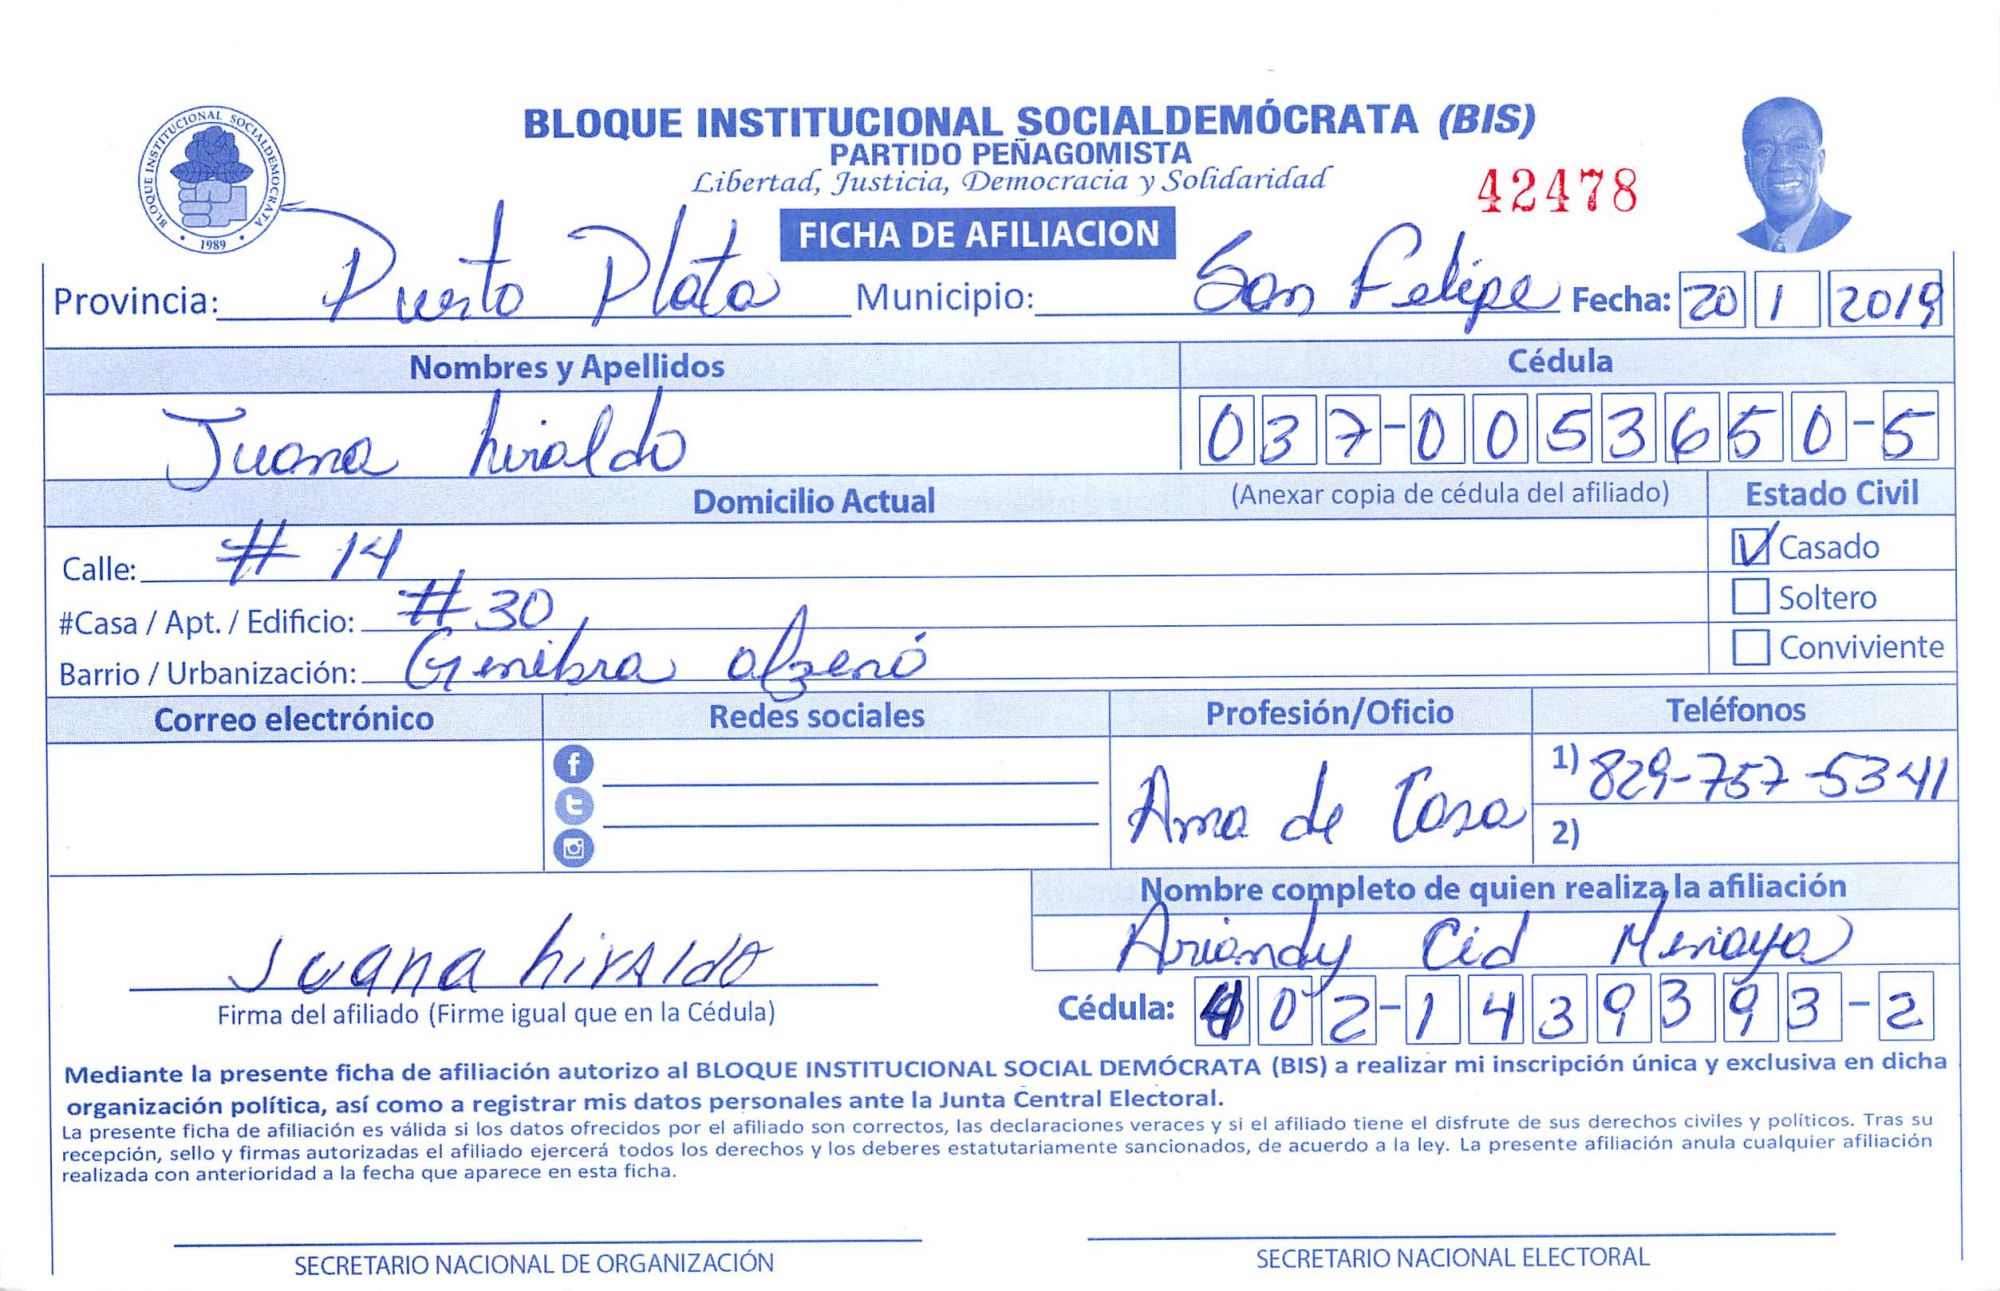 BLOQUE INSTITUCIONAL SOCIALDEMÓCRATA (BIS)
PARTIDO PEÑAGOMISTA
Libertad, Justicia, Democracia y Solidaridad
42478
BLOQUE INSTITUCIONAL SOCIALDEMOCRATA
1989
FICHA DE AFILIACION
Provincia: Puerto Plata Municipio: San Felipe Fecha: 20 1 2019
Nombres y Apellidos Cédula
Juana hiraldo 037-0053650-5
Domicilio Actual (Anexar copia de cédula del afiliado) Estado Civil
Calle: # 14 Casado
#Casa / Apt. / Edificio: #30 Soltero
Barrio / Urbanización: Ginibra Conviviente
Correo electrónico Redes sociales Profesión/Oficio Teléfonos
Ama de Casa 1) 829-757-5341
2)
Nombre completo de quien realiza la afiliación
Ariandy Cid Menaya
Juana hiraldo
Firma del afiliado (Firme igual que en la Cédula) Cédula: 402-1439393-2
Mediante la presente ficha de afiliación autorizo al BLOQUE INSTITUCIONAL SOCIAL DEMÓCRATA (BIS) a realizar mi inscripción única y exclusiva en dicha
organización política, así como a registrar mis datos personales ante la Junta Central Electoral.
La presente ficha de afiliación es válida si los datos ofrecidos por el afiliado son correctos, las declaraciones veraces y si el afiliado tiene el disfrute de sus derechos civiles y políticos. Tras su
recepción, sello y firmas autorizadas el afiliado ejercerá todos los derechos y los deberes estatutariamente sancionados, de acuerdo a la ley. La presente afiliación anula cualquier afiliación
realizada con anterioridad a la fecha que aparece en esta ficha.
SECRETARIO NACIONAL DE ORGANIZACIÓN SECRETARIO NACIONAL ELECTORAL